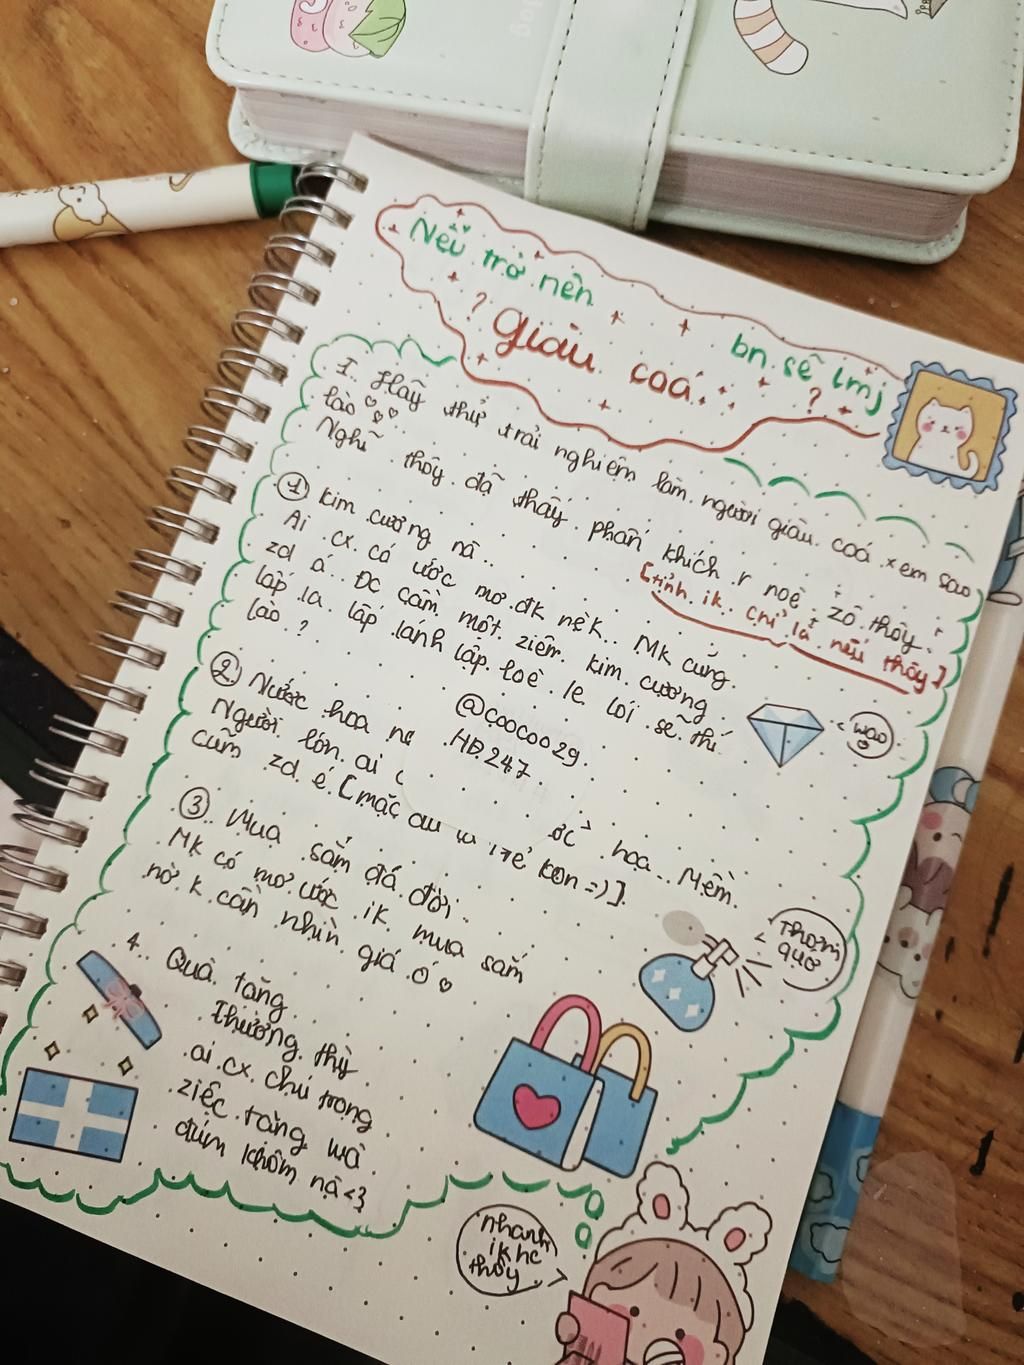 Nếu trở nên
giàu coá
bn sẽ lmj
? ?
1. Hãy thử trải nghiệm làm người giàu coá xem sao
lào
Nghĩ thôy đã thấy phấn khích r noè. zô thôy.
[tỉnh ik. chỉ là nếu thôy]
① Kim cương nà..
Ai cx có ước mơ đk nèk.. Mk cũng
zd á.. ĐC cầm một ziêm kim cương
lấp la lấp lánh lập loè le lói sẽ thí
lào.?
wao
② Nước hoa
@coocoo29.
.HĐ.247.
Người lớn ai hoa.. Mềm.
cũm zd é.[mặc kon=)].
③. Mua sắm đá đời..
Mk có mơ ước ik mua sắm
nờ k cần nhìn giá ó
Thơm
quớ
4.. Quà tặng
Thường thỳ
ai cx chú trọng
ziệc tặng wà
đúm khôm nà<3
nhanh
ik hc
thôy